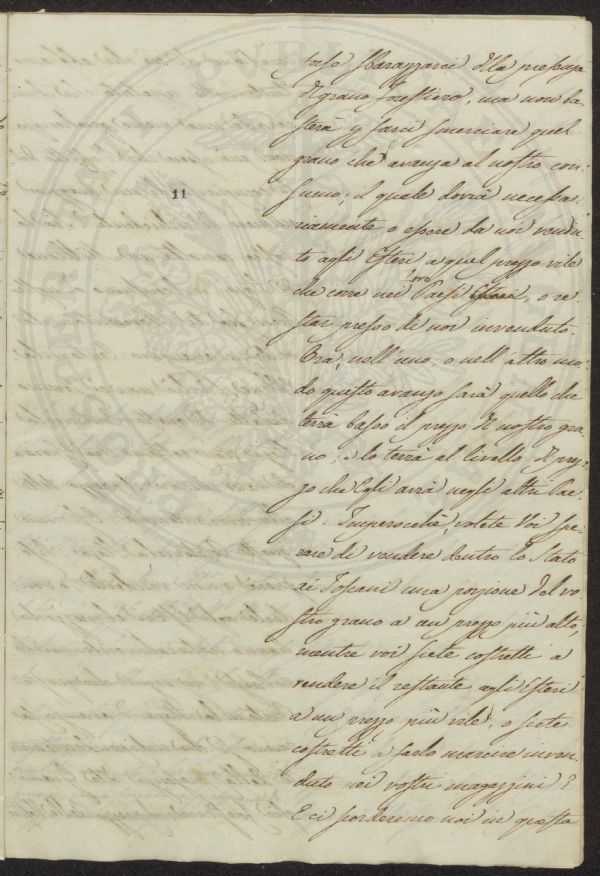 trebbe sbarazzarci della presenza
di grano forestiero, ma non ba-
sterà p farci smerciare quel
grano che avanza al nostro con-
sumo; il quale dovrà necessa-
riamente o essere da noi vendu-
to agli Esteri a quel prezzo vile
che corre nei loro Paesi Esteri, o re-
star presso di noi invenduto.
Ora, nell'uno, o nell'altro mo-
do questo avanzo sarà quello che
terrà basso il prezzo di nostro gra-
no, e lo terrà al livello di prez-
zo che Egli avrà negli altri Pae-
si. Imperocchè, volete Voi spe-
rare di vendere dentro lo Stato
ai Toscani una porzione del vo-
stro grano a un prezzo più alto,
mentre voi siete costretti a
vendere il restante agli Esteri
a un prezzo più vile, o siete
costretti a farlo marcire inven-
duto nei vostri magazzini?
E ci scorderemo noi in questa
11